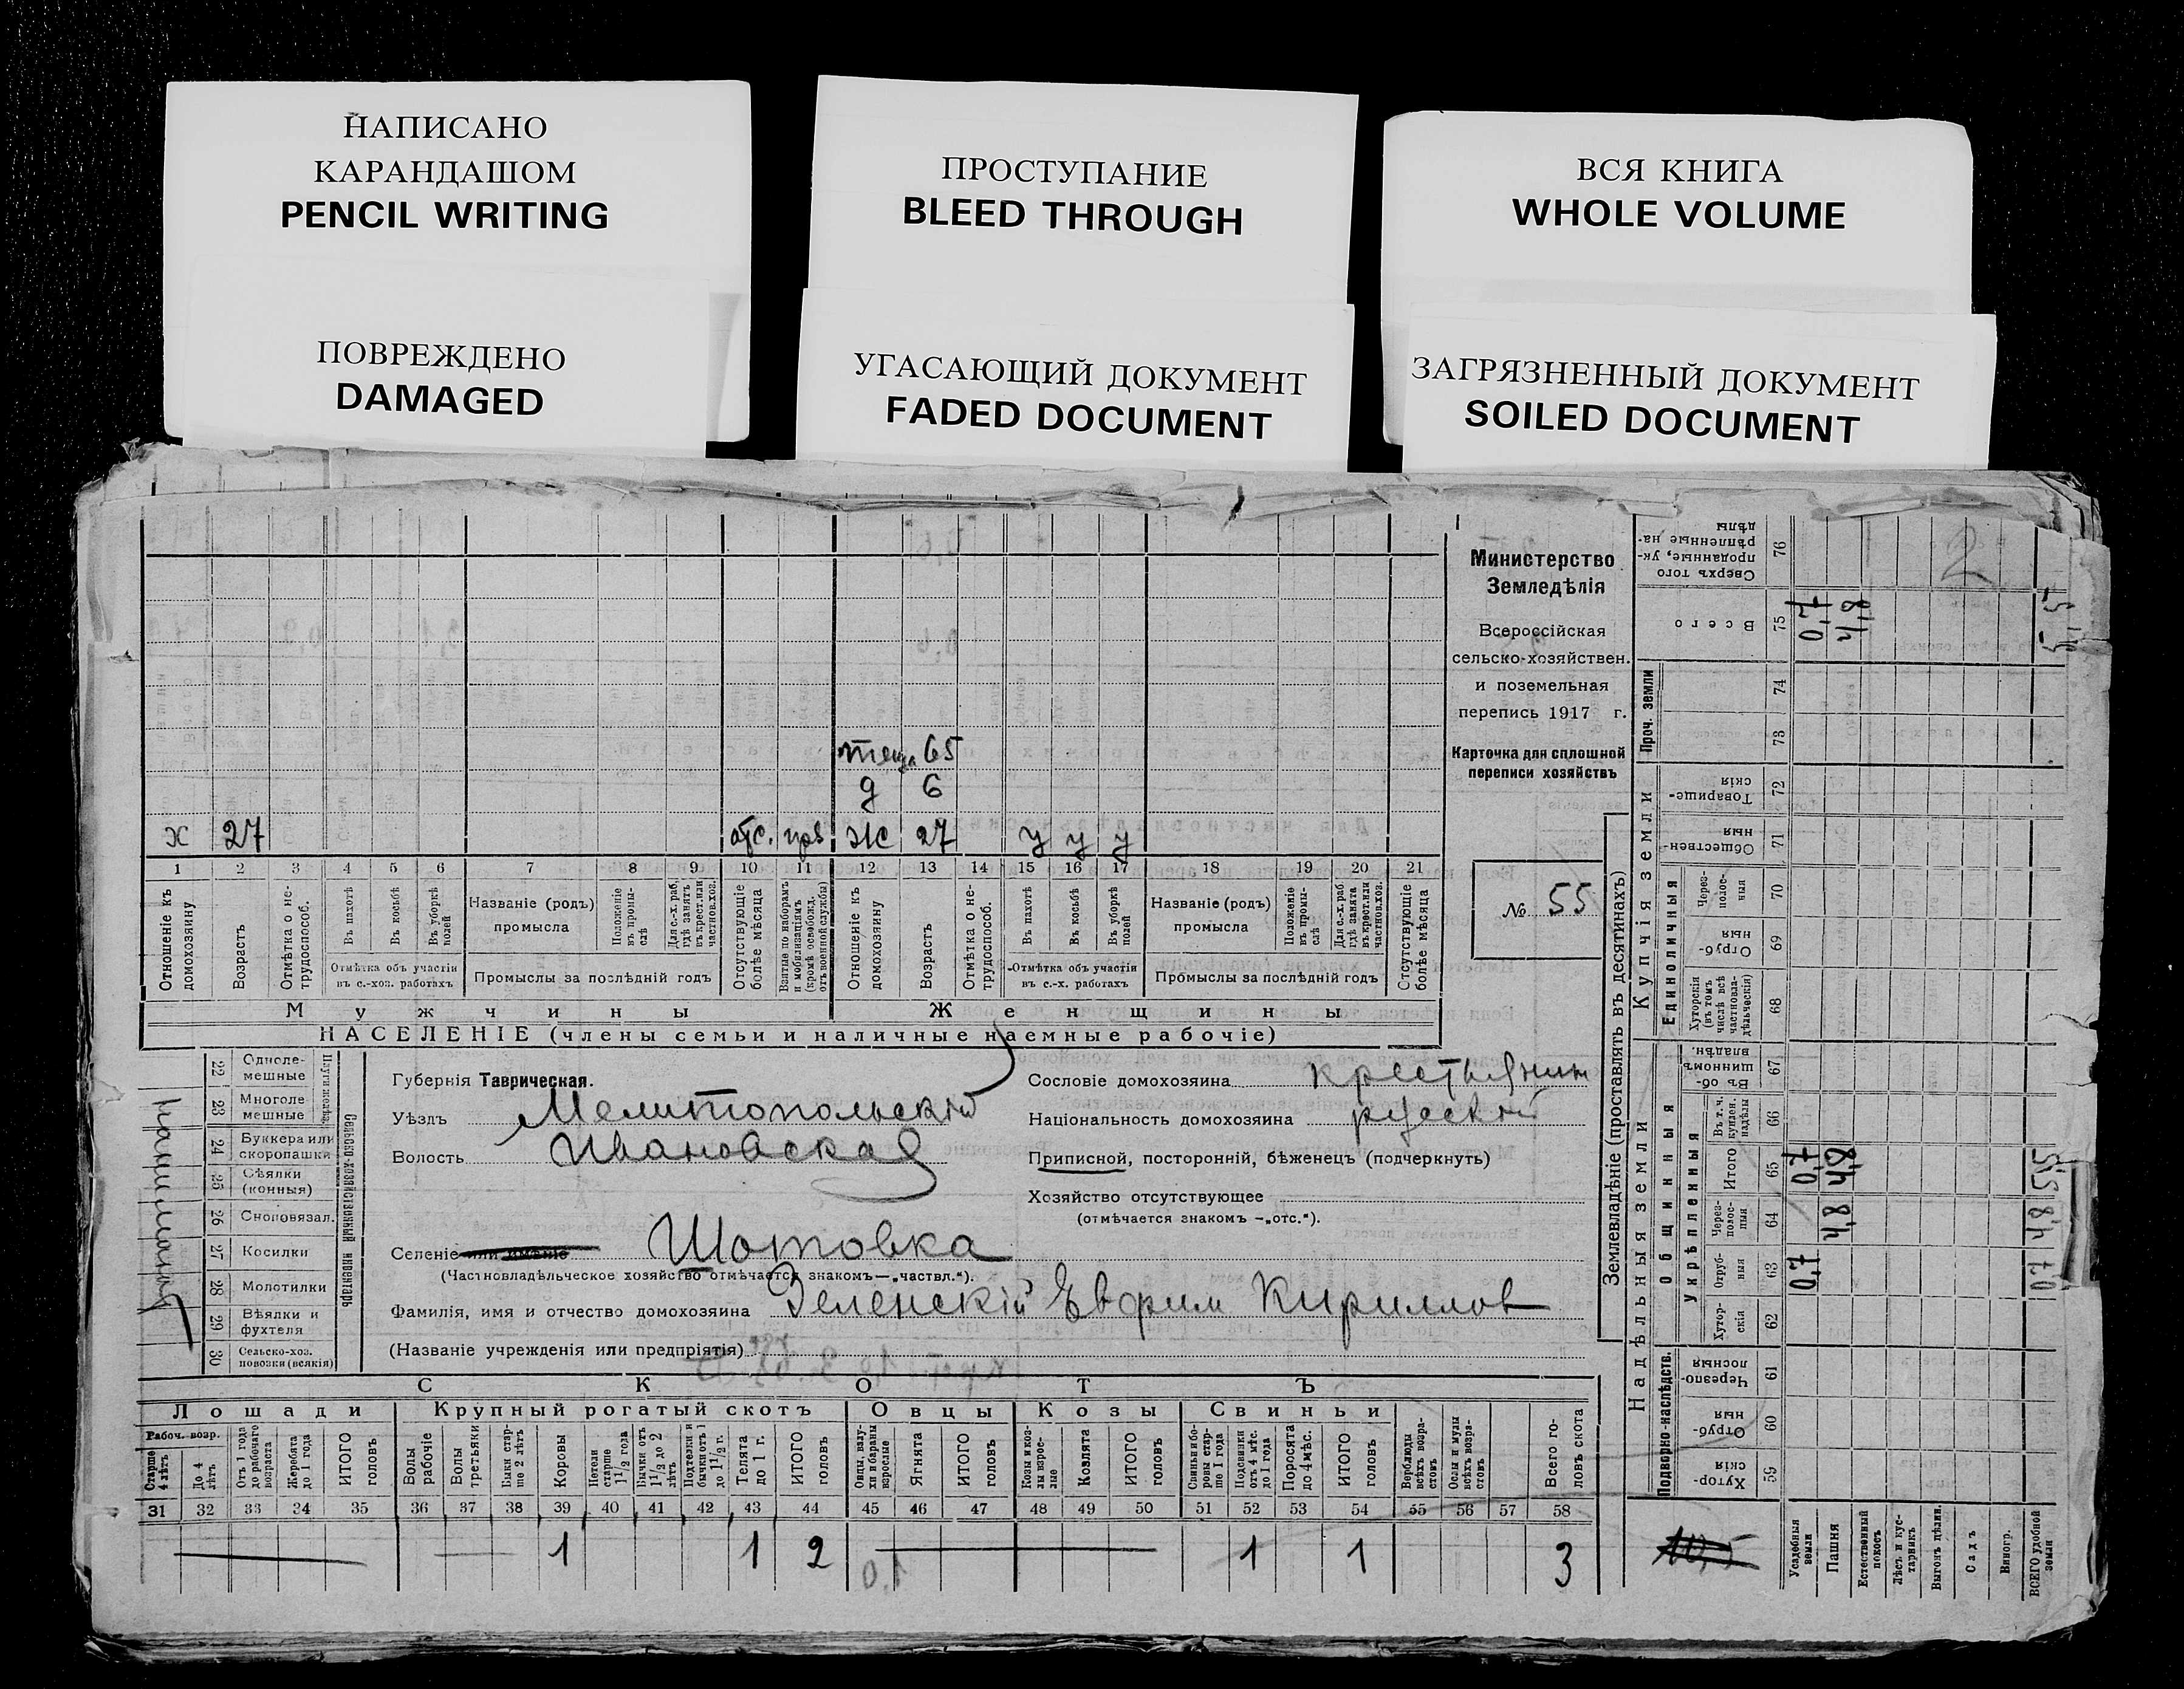 НАПИСАНО
КАРАНДАШОМ
PENCIL WRITING
ПОВРЕЖДЕНО
DAMAGED
ПРОСТУПАНИЕ
BLEED THROUGH
УГАСАЮЩИЙ ДОКУМЕНТ
FADED DOCUMENT
ВСЯ КНИГА
WHOLE VOLUME
ЗАГРЯЗНЕННЫЙ ДОКУМЕНТ
SOILED DOCUMENT
теща 65
д 6
х 27 отс. Ж 27 у у у
1 2 3 4 5 6 7 8 9 10 11 12 13 14 15 16 17 18 19 20 21
Отношеніе къ домохозяину
Возрастъ
Отмѣтка о не-трудоспособ.
Въ пахотѣ
Въ косьбѣ
Въ уборкѣ полей
Отмѣтка объ участіи
въ с.-хоз. работахъ
Названіе (родъ)
промысла
Положеніе въ промы-слѣ
Для с.-х. раб. гдѣ занятъ въ крест. или частнов. хоз.
Промыслы за послѣдній годъ
Отсутствующіе болѣе мѣсяца
Взятые по наборамъ и мобилизаціямъ (кромѣ освобожд. отъ военной службы)
Отношеніе къ домохозяину
Возрастъ
Отмѣтка о не-трудоспособ.
Въ пахотѣ
Въ косьбѣ
Въ уборкѣ полей
Отмѣтка объ участіи
въ с.-х. работахъ
Названіе (родъ)
промысла
Положеніе въ промы-слѣ
Для с.-х. раб. гдѣ занята въ крест. или частнов. хоз.
Промыслы за послѣдній годъ
Отсутствующіе болѣе мѣсяца
Мужчины Женщины
НАСЕЛЕНІЕ (члены семьи и наличные наемные рабочіе)
Министерство
Земледѣлія
Всероссійская
сельско-хозяйствен.
и поземельная
перепись 1917 г.
Карточка для сплошной
переписи хозяйствъ
№ 55
22 Одноле-мешные
23 Многоле мешные
24 Буккера или скоропашки
25 Сѣялки (конныя)
26 Сноповязал.
27 Косилки
28 Молотилки
29 Вѣялки и фухтеля
30 Сельско-хоз. повозки (всякія)
Сельско-хозяйственный инвентарь
Губернія Таврическая.
Уѣздъ Мелитопольскій
Волость Ивановская
Селеніе или имѣніе Шотовка
(Частновладѣльческое хозяйство отмѣчается знакомъ—„частвл.“).
Фамилія, имя и отчество домохозяина Зеленскій Ефрим Кириллов
(Названіе учрежденія или предпріятія)
Сословіе домохозяина крестьянин
Національность домохозяина русскій
Приписной, посторонній, бѣженецъ (подчеркнуть)
Хозяйство отсутствующее
(отмѣчается знакомъ —„отс.“).
СКОТЪ
Лошади Крупный рогатый скотъ Овцы Козы Свиньи
Рабоч. возр.
Старше 4 лѣтъ
До 4 лѣтъ
Отъ 1 года до рабочаго возраста
Жеребята до 1 года
ИТОГО головъ
Волы рабочіе
Волы третьяки
Быки стар-ше 2 лѣтъ
Коровы
Нетели старше 1 1/2 года
Бычки отъ 1 1/2 до 2 лѣтъ
Подтелки и бычки отъ 1 до 1 1/2 г.
Телята до 1 г.
ИТОГО головъ
Овцы, валу-хи и бараны взрослые
Ягнята
ИТОГО головъ
Козы и коз-лы взрос-лые
Козлята
ИТОГО головъ
Свиньи и бо-ровы стар-ше 1 года
Подсвинки отъ 4 мѣс. до 1 года
Поросята до 4 мѣс.
ИТОГО головъ
Верблюды всѣхъ возра-стовъ
Ослы и мулы всѣхъ возра-стовъ
Всего го-ловъ скота
31 32 33 34 35 36 37 38 39 40 41 42 43 44 45 46 47 48 49 50 51 52 53 54 55 56 57 58
1 1 2 1 1 3
Землевладѣніе (проставлять въ десятинахъ)
Надѣльныя земли
Купчія земли
Проч. земли
Подворно-наслѣдств.
Общинныя
Укрѣпленныя
Единоличныя
Сверхъ того проданные, ук-рѣпленные на-дѣлы 76
Всего 75 0,7 4,8 5,5
74
73
Товарище-скія 72
Обществен-ныя 71
Через-полос-ныя 70
Отруб-ныя 69
Хуторскія (въ томъ числѣ всѣ частновла-дѣльческія) 68
Въ об-щинномъ владѣн. 67
Въ т. ч. купчен. надѣлы 66
Итого 65 0,7 4,8 5,5
Через-полос-ныя 64 4,8 4,8
Отруб-ныя 63 0,7 0,7
Хутор-скія 62
Черезпо-лосныя 61
Отруб-ныя 60
Хутор-скія 59
Усадебныя земли
Пашня
Естественный покосъ
Лѣсъ и кус-тарникъ
Выгонъ дѣлин.
Садъ
Виногр.
ВСЕГО удобной земли
2